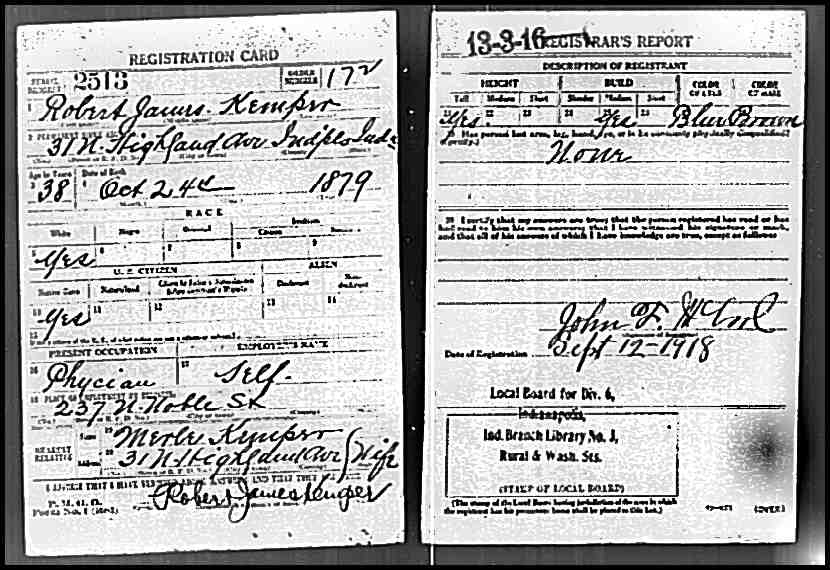 REGISTRATION CARD
SERIAL NUMBER 2513 ORDER NUMBER 172
1 Robert James Kemper
2 PERMANENT HOME ADDRESS
31 N. Highland Ave Indpls Ind
Age in Years Date of Birth
3 38 4 Oct 24th 1879
RACE
White Negro Oriental Indian
Citizen
5 Yes 6 7 8 9
U. S. CITIZEN ALIEN
Native Born Naturalized Citizen by Father's Naturalization Before Registrant's Majority Declarant Non-declarant
10 Yes 11 12 13 14
15
PRESENT OCCUPATION EMPLOYER'S NAME
16 Phycian 17 Self.
18 PLACE OF EMPLOYMENT OR BUSINESS
237 N. Noble St
NEAREST RELATIVE
Name 19 Merle Kemper
Address 20 31 N. Highland Ave Wife
I AFFIRM THAT I HAVE VERIFIED ABOVE ANSWERS AND THAT THEY ARE TRUE
P. M. G. O.
Form No. 1 (Red)
Robert James Kemper
13-3-16 REGISTRAR'S REPORT
DESCRIPTION OF REGISTRANT
HEIGHT BUILD COLOR OF EYES COLOR OF HAIR
Tall Medium Short Slender Medium Stout
21 Yes. 22 23 24 Yes 25 Blue Brown
29 Has person lost arm, leg, hand, eye, or is he obviously physically disqualified?
(Specify.)
None
30 I certify that my answers are true; that the person registered has read or has
had read to him his own answers; that I have witnessed his signature or mark,
and that all of his answers of which I have knowledge are true, except as follows:
John F.
Date of Registration Sept 12-1918
Local Board for Div. 6,
Indianapolis,
Ind. Branch Library No. 3,
Rural & Wash. Sts.
(STAMP OF LOCAL BOARD)
(The stamp of the Local Board having jurisdiction of the area in which
the registrant has his permanent home shall be placed in this box.)
(OVER)